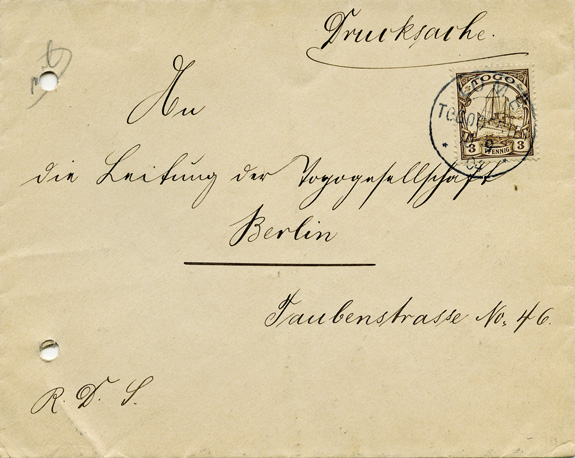 Drucksache.
TOGO
3 3
PFENNIG
LOME
An
die Leitung der Togogesellschaft
Berlin
Taubenstrasse No. 46.
R. D. S.